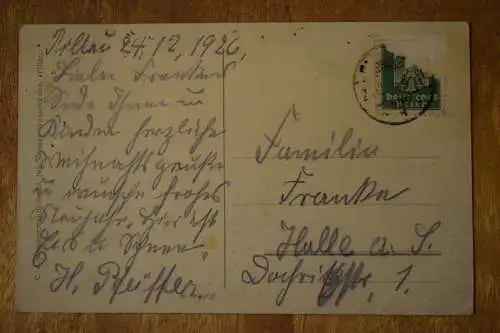 24. 12. 1926.
Liebe Frankes
Sende Ihnen u
Kinder herzliche
Weihnachtsgrüße
u wünsche frohes
Neujahr, Hier ist
Eis u Schnee.
H. Pfeiffer
Deutsches
Reich
Familie
Franke
Halle a. S.
str. 1.